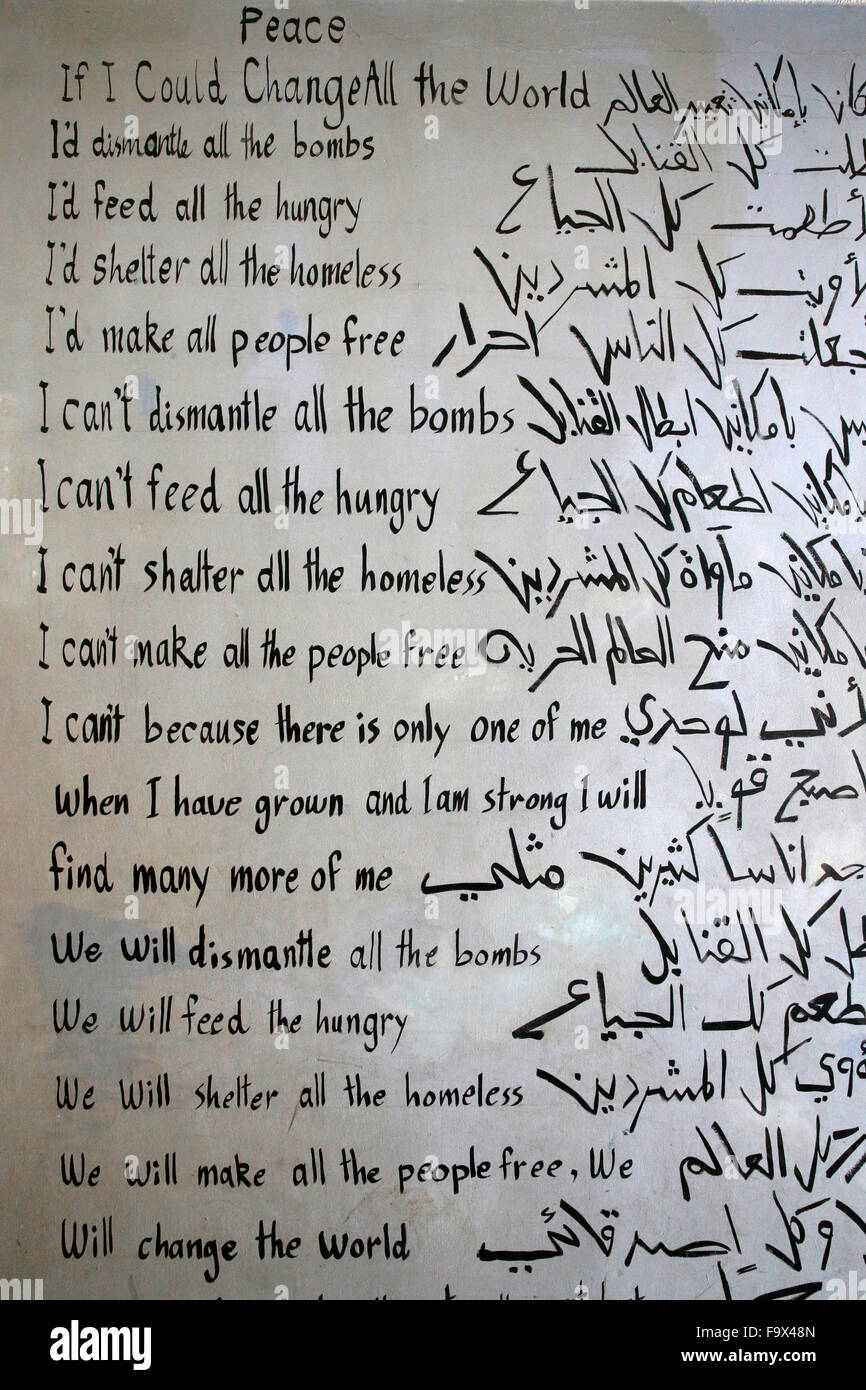 Peace
If I Could Change All the World بإمكاني تغيير العالم
I'd dismantle all the bombs كل القنابل
I'd feed all the hungry لأطعمت كل الجياع
I'd shelter all the homeless لأويت كل المشردين
I'd make all people free جعلت كل الناس احرار
I can't dismantle all the bombs بإمكاني ابطال القنابل
I can't feed all the hungry بإمكاني اطعام كل الجياع
I can't shelter all the homeless بامكاني مأواة كل المشردين
I can't make all the people free بامكاني منح العالم الحرية
I can't because there is only one of me لأنني لوحدي
when I have grown and I am strong I will اصبح قويا
find many more of me اناسا كثيرين مثلي
We will dismantle all the bombs كل القنابل
We will feed the hungry كل الجياع
We will shelter all the homeless كل المشردين
We will make all the people free, We العالم
Will change the world
alamy stock photo
F9X48N
www.alamy.com